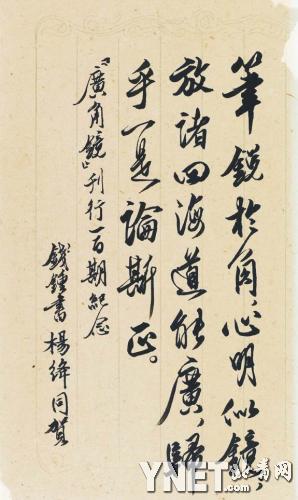 筆鋭於角,心明似鏡,
放諸四海道能廣,歸
乎一是論斯正。
「廣角鏡」刊行一百期紀念
錢鍾書 楊絳 同賀
YNET.com
北青网